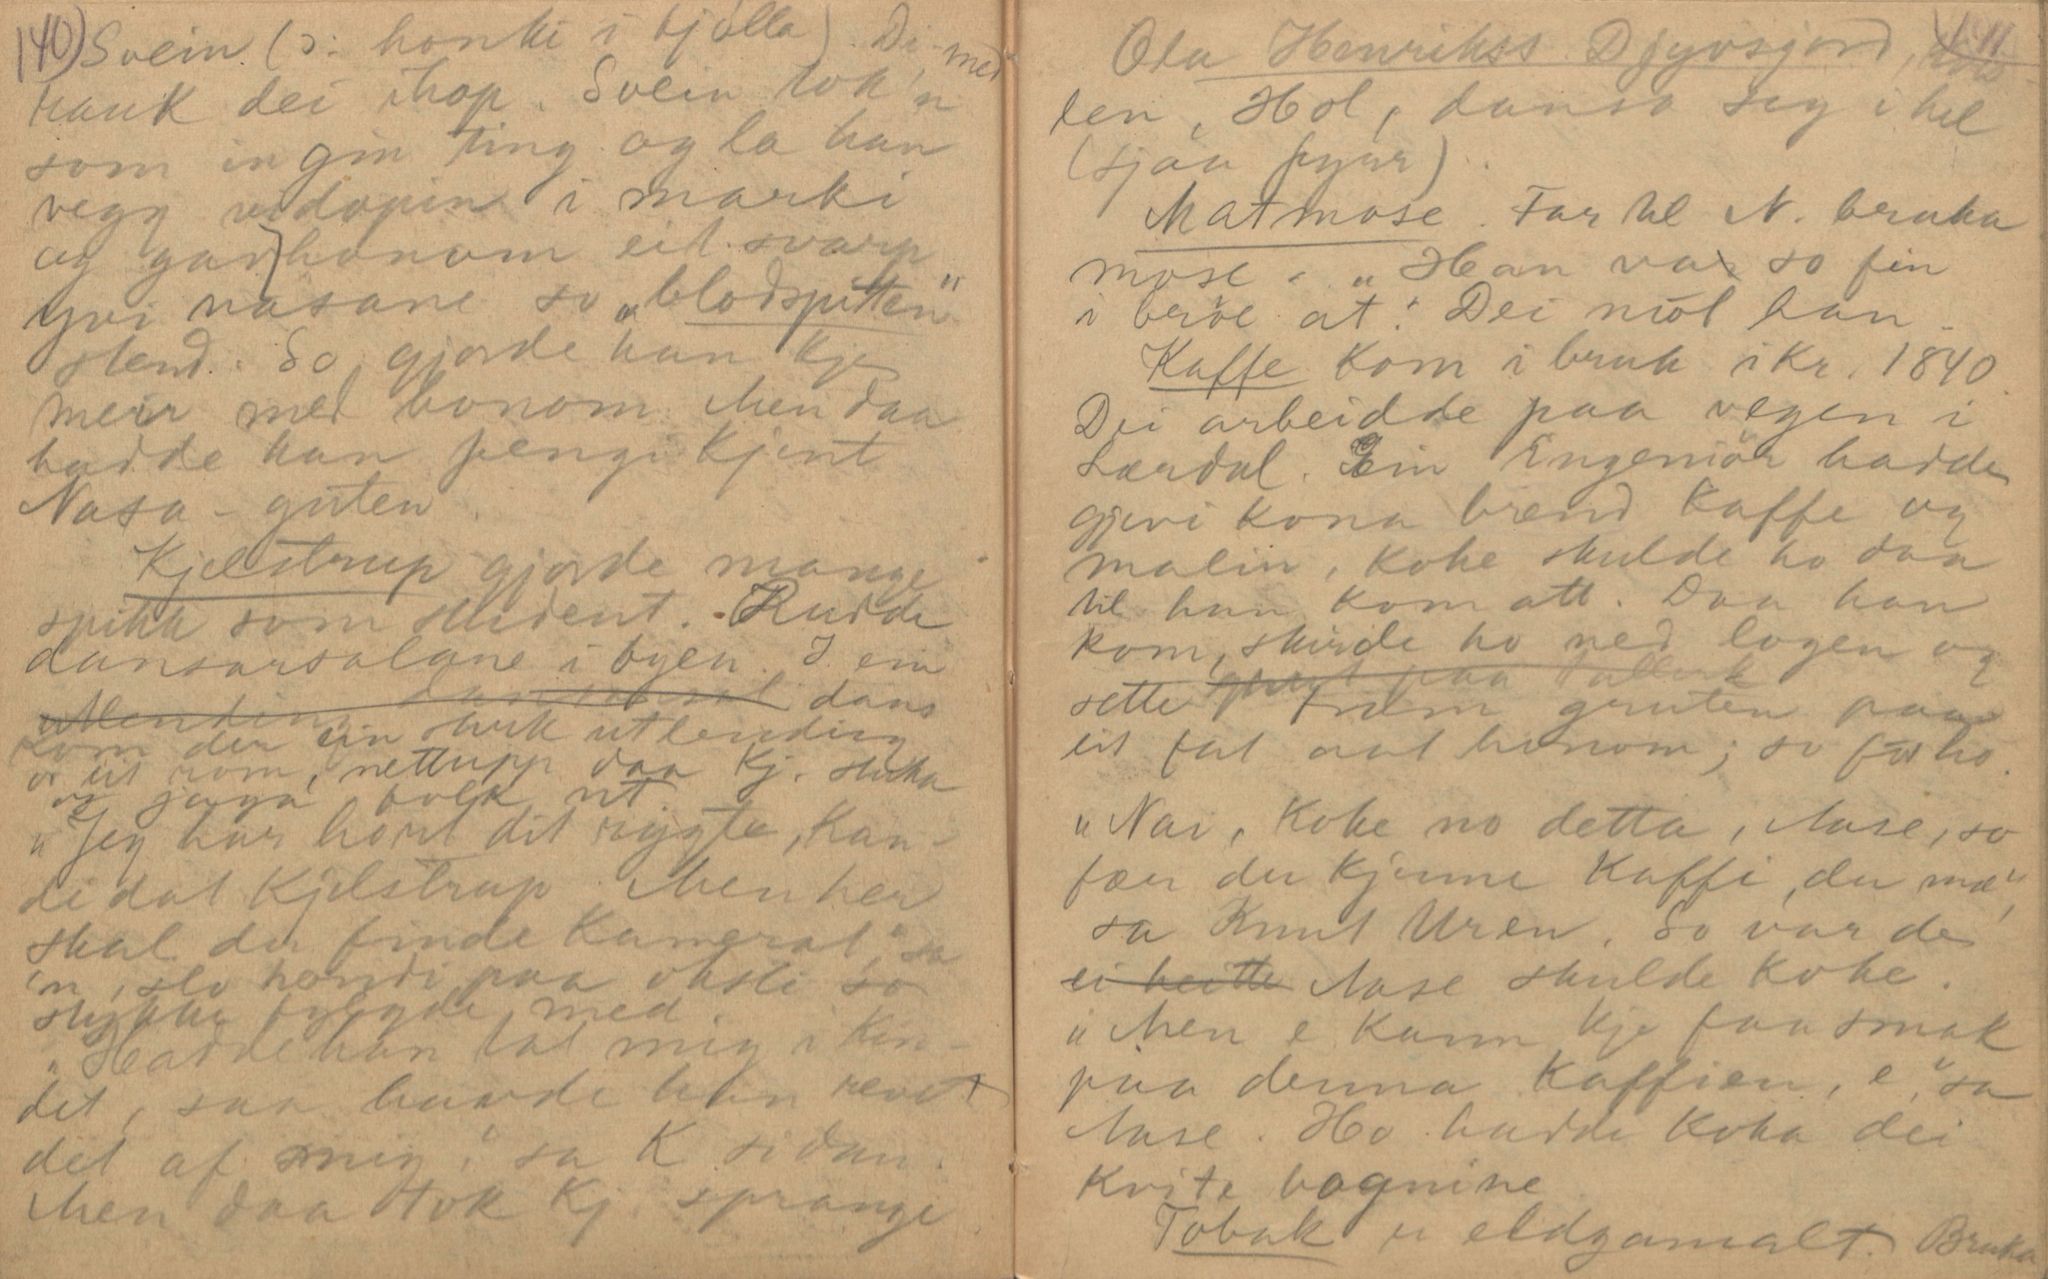 140) Svein (ɔ: honki i bjølla). Di med
rauk dei ihop. Svein tok 'n
som ingin ting og la han
vegg vedopin i marki
og gav honom eit svarp
yvi nasane so "blodspitten"
stend. So gjorde han kje
meir med honom. Men daa
hadde han fengi kjent
Nasa-guten.
Kjelstrup gjorde mange
spikk som student. Rudde
dansarsalane i byen. I ein
utlending dansarsal dans
kom der ein sterk utlending
or eit rom, nettupp daa Kj. skuka
og jaga folk ut.
"Jeg har hørt dit rygte, Kan-
didat Kjelstrup. Men her
skal du finde Kamerat," sa
'n, slo hondi paa oksli so
stykke fylgde med.
"Hadde han tat mig i Kin-
det, saa havde han revet
det af mig," sa K. sidan.
Men daa tok Kj. sprange
141
Ola Henrikss. Djyvsjord,
len, Hol, dansa seg ihel
(sjaa fyrr).
Matmose. Far til N. bruka
mose. "Han va so fin
i brøe at." Dei mol han.
Kaffe kom i bruk ikr. 1840.
Dei arbeidde paa vegen i
Lærdal. Ein Engeniør hadde
gjevi kona brend Kaffe og
malin, koke skulde ho daa
til han kom att. Daa han
kom, skirde ho ned logen og
sette fram gruten paa
eit fat aat honom; so for ho.
"Nai, koke no detta, Aase, so
fær du kjenne Kaffi, du mæ",
sa Knut Uren. So var de
ei heitte Aase skulde koke.
"Men e kann kje faa smak
paa denna Kaffien, e," sa
Aase. Ho hadde koka dei
kvite bognine.
Tobak er eldgamalt. Bruka